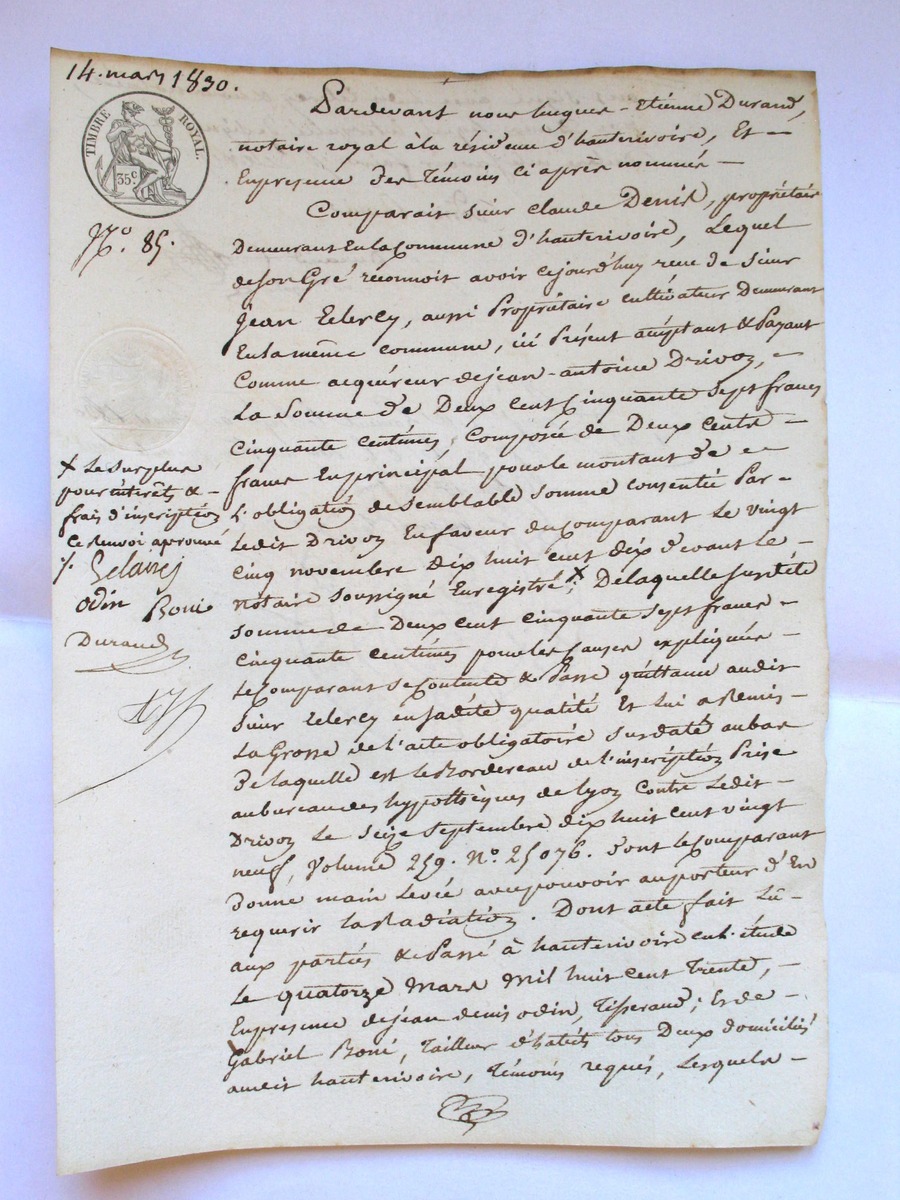 14. mars 1830.
TIMBRE ROYAL.
35c
No. 85.
Pardevant nous hugues-Etienne Durand,
notaire royal à la résidence d'hauterivoire, Et-
En présence des témoins ci après nommés-
Comparait sieur Claude Denis, propriétaire
Demeurant En la Commune d'hauterivoire, Lequel
de son Gré reconnoit avoir cejourd'huy reçu de sieur
Jean Leclercq, aussi Propriétaire cultivateur Demeurant
En la même commune, ici Présent acceptant & Payant
Comme acquéreur de jean-antoine Drivoz,-
La Somme de Deux cent Cinquante Sept francs
Cinquante Centimes, Composée de Deux Cents-
francs En principal pour le montant de-
L'obligation de semblable somme consentie Par-
Ledit Drivoz En faveur du Comparant Le vingt
Cinq novembre Dix huit Cent Dix devant le-
notaire soussigné Enregistré X; De laquelle susdite
somme de Deux Cent Cinquante Sept francs-
Cinquante Centimes pour les Causes expliquées-
Le Comparant se Contente & Passe quittance audit
Sieur Leclercq en sadite qualité Et lui a Remis-
La Grosse de l'acte obligatoire susdaté au bas
De laquelle est le Bordereau de l'inscription Prise
au bureau des hypothèques de Lyon Contre Ledit-
Drivoz Le Seize Septembre Dix huit Cent vingt
neuf, Volume 259. No. 25076. Dont le Comparant
Donne main Levée avec pouvoir au porteur d'En
requerir la Radiation. Dont acte fait Lû-
aux parties & Passé à hauterivoire en l'étude
Le quatorze Mars Mil huit Cent Trente,-
En présence de jean denis odin, Tisserand; Et de-
Gabriel Boné, Tailleur d'habits tous Deux domiciliés
audit hauterivoire, Témoins requis, Lesquels-
X Le surplus
pour intérêts &
frais d'inscription
Ce Renvoi aprouvé
odin Boné
Durand